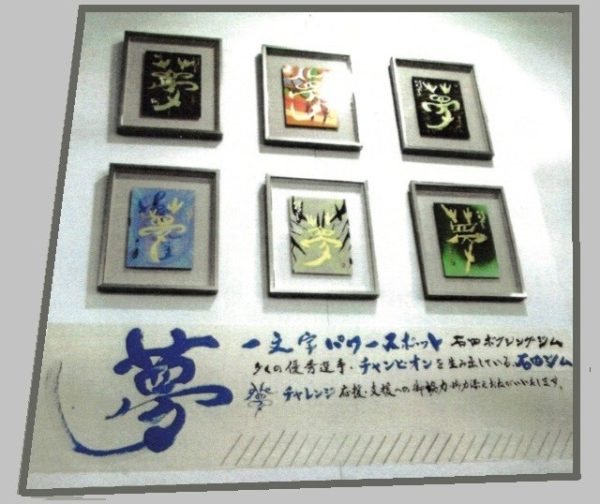 夢
夢
夢
夢
夢
夢
夢
一文字パワースポット 石田ボクシングジム
多くの優秀選手・チャンピオンを生み出している、石田ジム
夢 チャレンジ 応援・支援への御協力